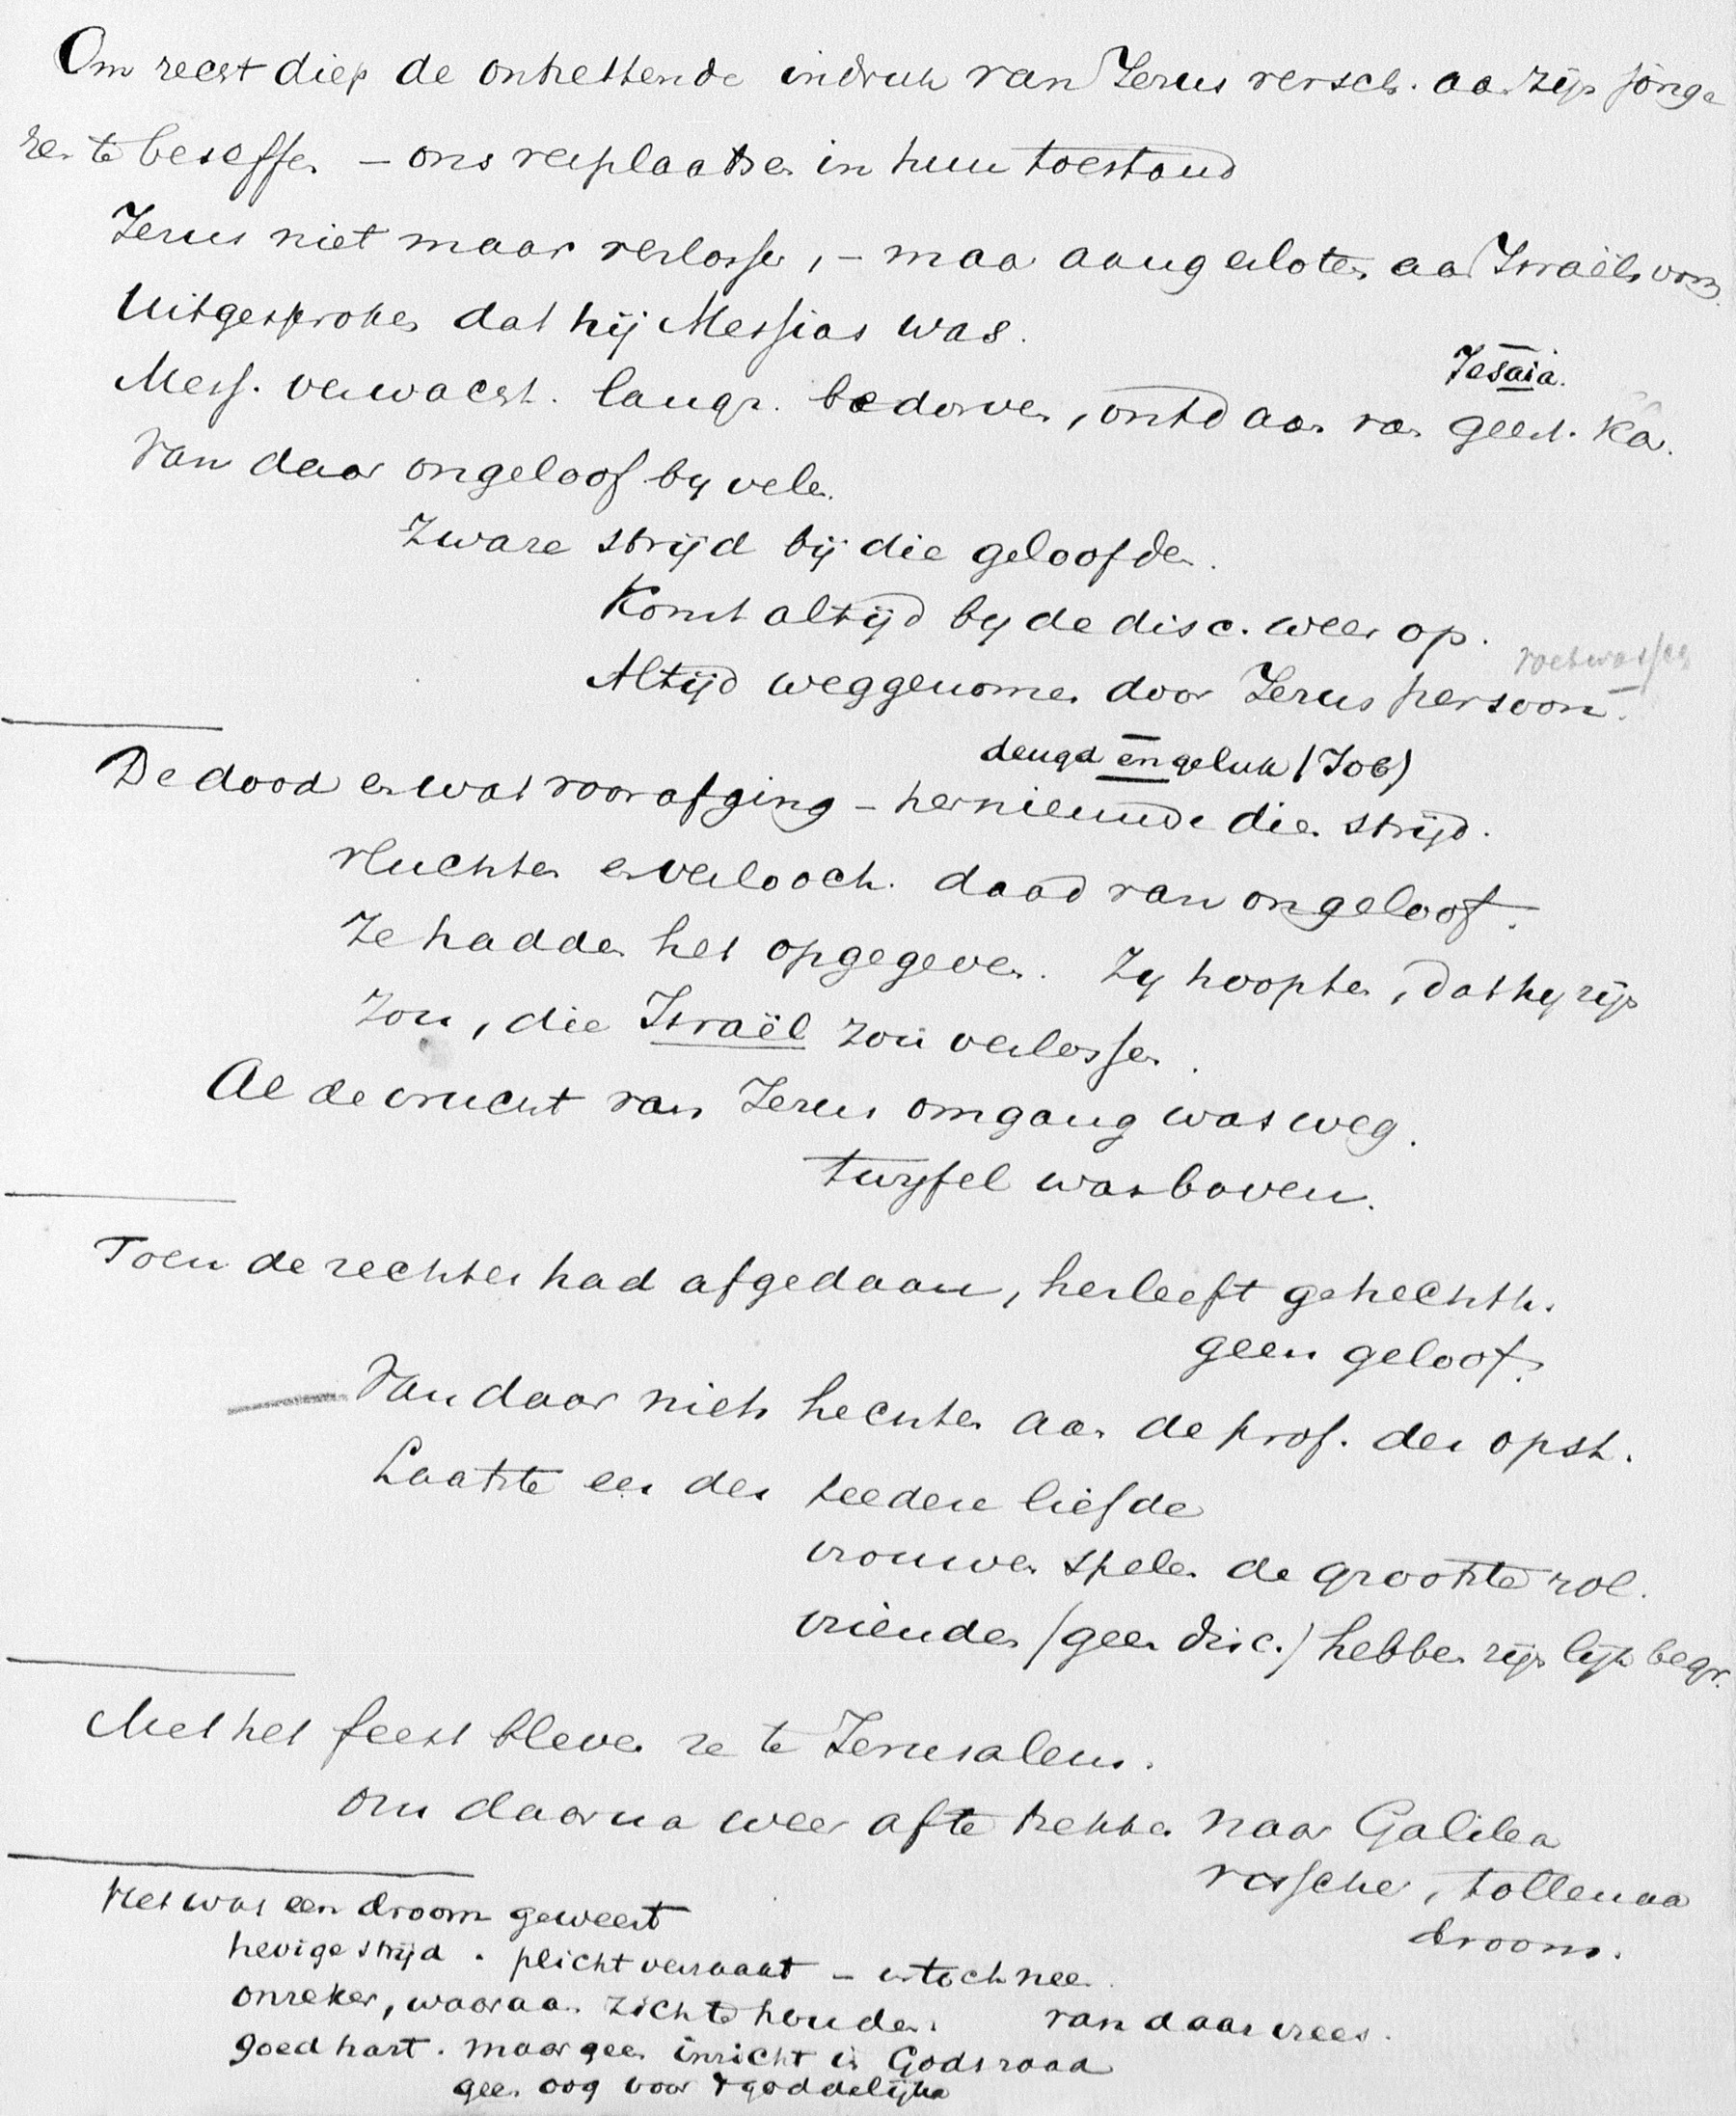 Om recht diep de ontzettende indruk van Jezus versch. aa zijn jonge
ren te beseffen – ons verplaatsen in hun toestand
Jezus niet maar verlosser, – maar aangesloten aan Israëls vorm.
Uitgesproken dat hij Messias was.
Jesaia.
Mess. verwacht. langz. bedorven, ontd aan van geest. ka.
Van daar ongeloof by velen.
Zware strijd bij die geloofden.
Komt altijd by de disc. weer op.
voetwassen
Altijd weggenomen door Jezus persoon.
deugd en geluk (Job)
De dood en wat voorafging – hernieuwde dien strijd.
vluchten en verlooch. daad van ongeloof.
Ze hadden het opgegeven. Zy hoopten, dat hy zijn
zou, die Israël zou verlossen.
Al de vrucht van Jezus omgang was weg.
twyfel was boven.
Toen de rechter had afgedaan, herleeft gehechth.
geen geloof.
Van daar niets hechten aan de prof. der opst.
Laatste eer der teedere liefde
vrouwen spelen de grootste rol.
vrienden (geen disc.) hebben zijn lijk begr.
Met het feest bleven ze te Jerusalem.
om daarna weer af te trekken naar Galilea
visscher, tollenaa
droom.
Het was een droom geweest
hevige strijd. plicht verzaakt – en toch nee.
onzeker, waaraan zich te houden. van daar vrees.
goed hart. maar geen inzicht in Gods raad
geen oog voor 't goddelijke